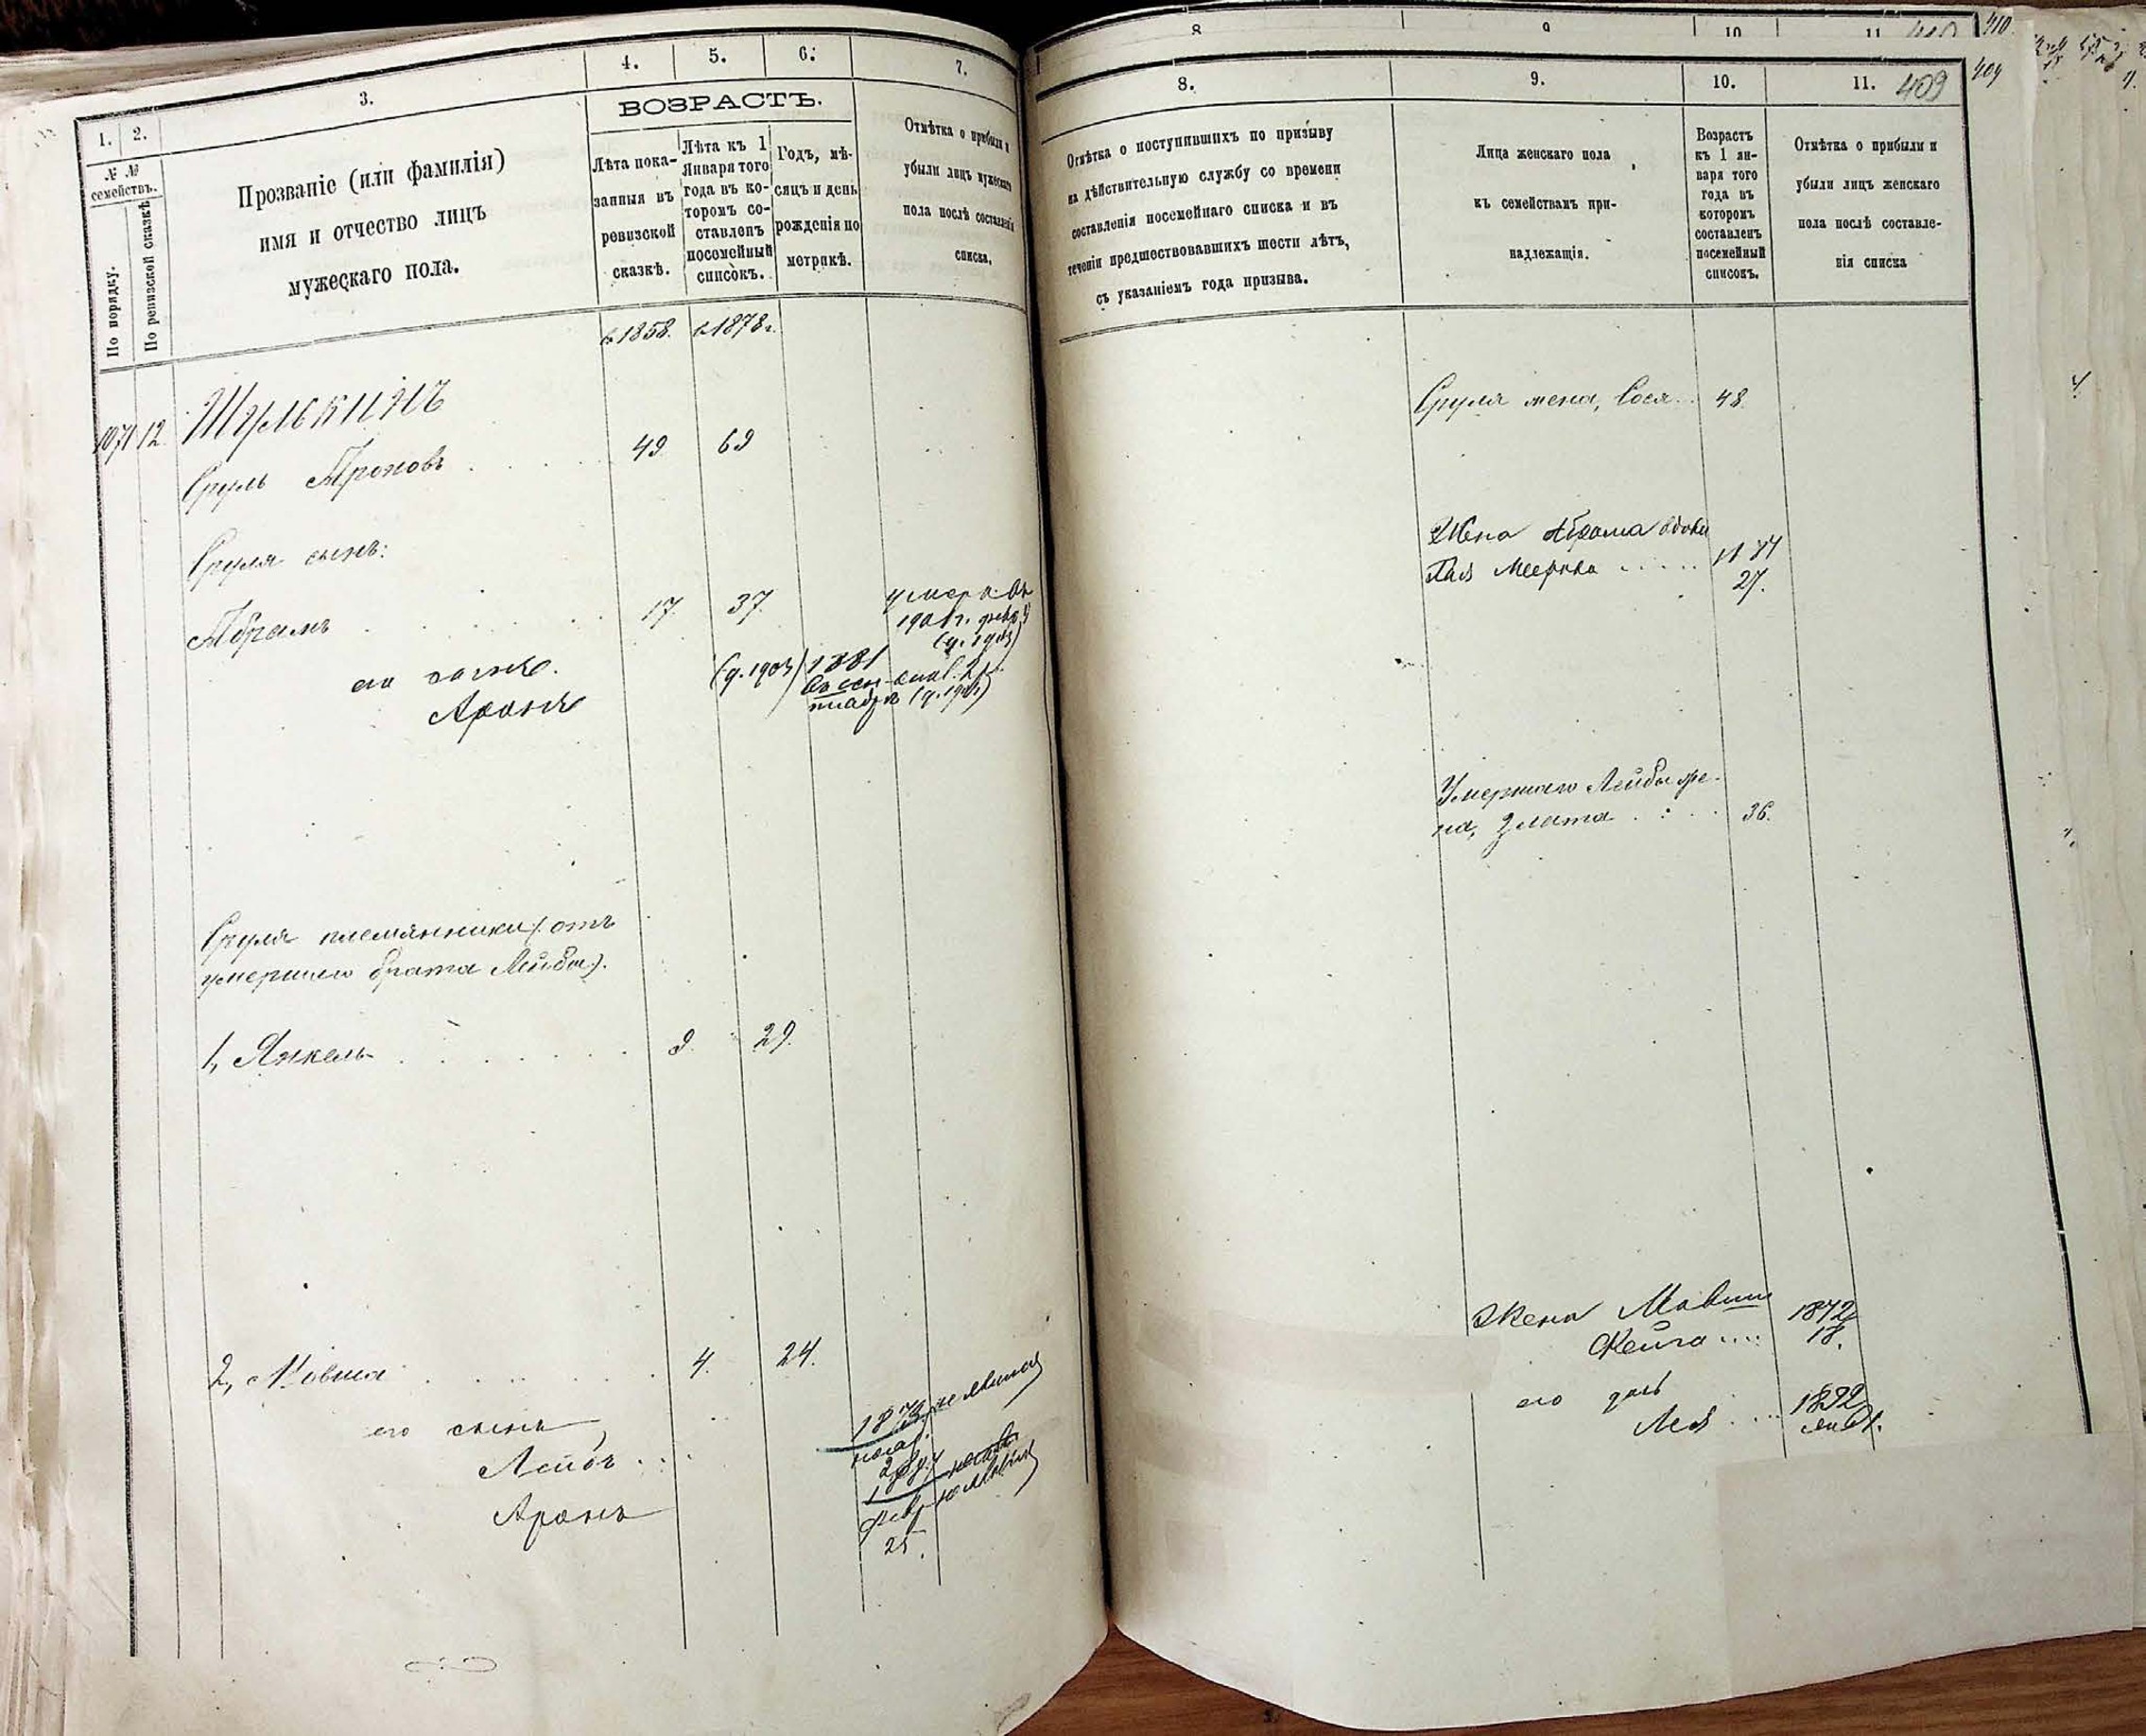 1. 2. 3. 4. 5. 6. 7.
№ №
семействъ.
По порядку.
По ревизской сказкѣ
Прозваніе (или фамилія)
имя и отчество лицъ
мужескаго пола.
ВОЗРАСТЪ.
Лѣта пока-
занныя въ
ревизской
сказкѣ.
Лѣта къ 1
Января того
года въ ко-
торомъ со-
ставленъ
посемейный
списокъ.
Годъ, мѣ-
сяцъ и день
рожденія по
метрикѣ.
Отмѣтка о прибыли и
убыли лицъ мужескаго
пола послѣ составленія
списка.
въ 1858. въ 1878 г.
1071 12 Шулькинъ
Сруль Ароновъ 49 69
Сруля сынъ:
Абрамъ 17. 37.
умеръ въ
1901 г.
его сынъ.
Аронъ
(ч. 1903) 1881
Сруля племянники (отъ
умершаго брата Лейбы).
1, Янкель 9. 29.
2, Мовша 4. 24.
его сынъ
Лейба
Аронъ
25.
8 9 10 11 410
410
8. 9. 10. 11. 409
409
Отмѣтка о поступившихъ по призыву
на дѣйствительную службу со времени
составленія посемейнаго списка и въ
теченіи предшествовавшихъ шести лѣтъ,
съ указаніемъ года призыва.
Лица женскаго пола
къ семействамъ при-
надлежащія.
Возрастъ
къ 1 ян-
варя того
года въ
которомъ
составленъ
посемейный
списокъ.
Отмѣтка о прибыли и
убыли лицъ женскаго
пола послѣ составле-
нія списка
Сруля жена, Сося 48
Жена Абрама вдова
Мееровна
27.
Умершаго Лейбы же-
на, Злата 36.
Жена Мовши 1872
18.
его дочь 1892
Лея